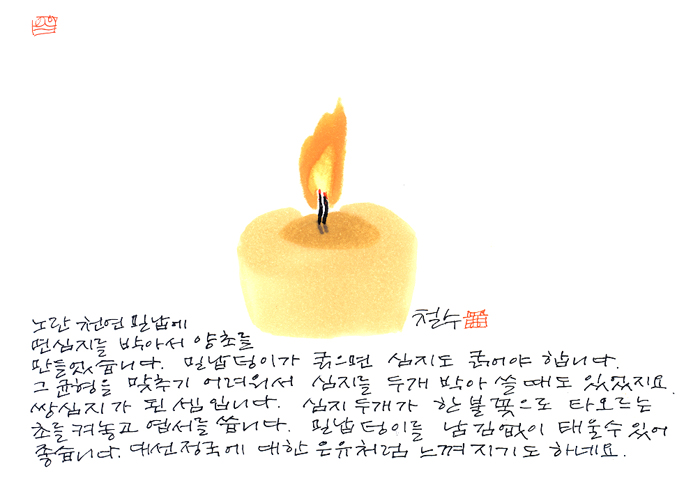 노란 천연밀납에
면심지를 박아서 양초를
만들었습니다. 밀납덩이가 굵으면 심지도 굵어야 합니다.
그 균형을 맞추기 어려워서 심지를 두개 박아 쓸때도 있었지요.
쌍심지가 된 셈입니다. 심지 두개가 한불꽃으로 타오르는
초를 켜놓고 엽서를 씁니다. 밀납덩이를 남김없이 태울수있어
좋습니다. 대선정국에 대한 은유처럼 느껴지기도 하네요.
철수